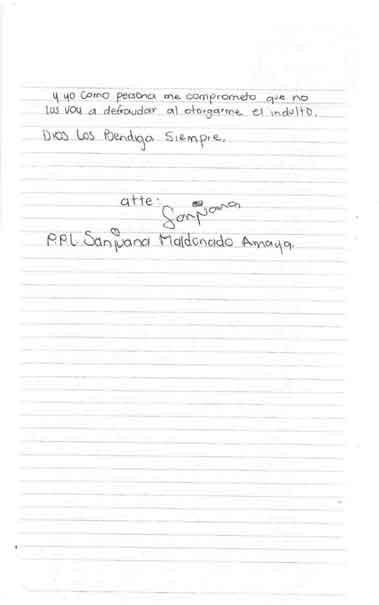 y yo como persona me comprometo que no
los voy a defraudar al otorgarme el indulto.
Dios Los Bendiga Siempre.
atte:
Sanjuana
P.P.L Sanjuana Maldonado Amaya.